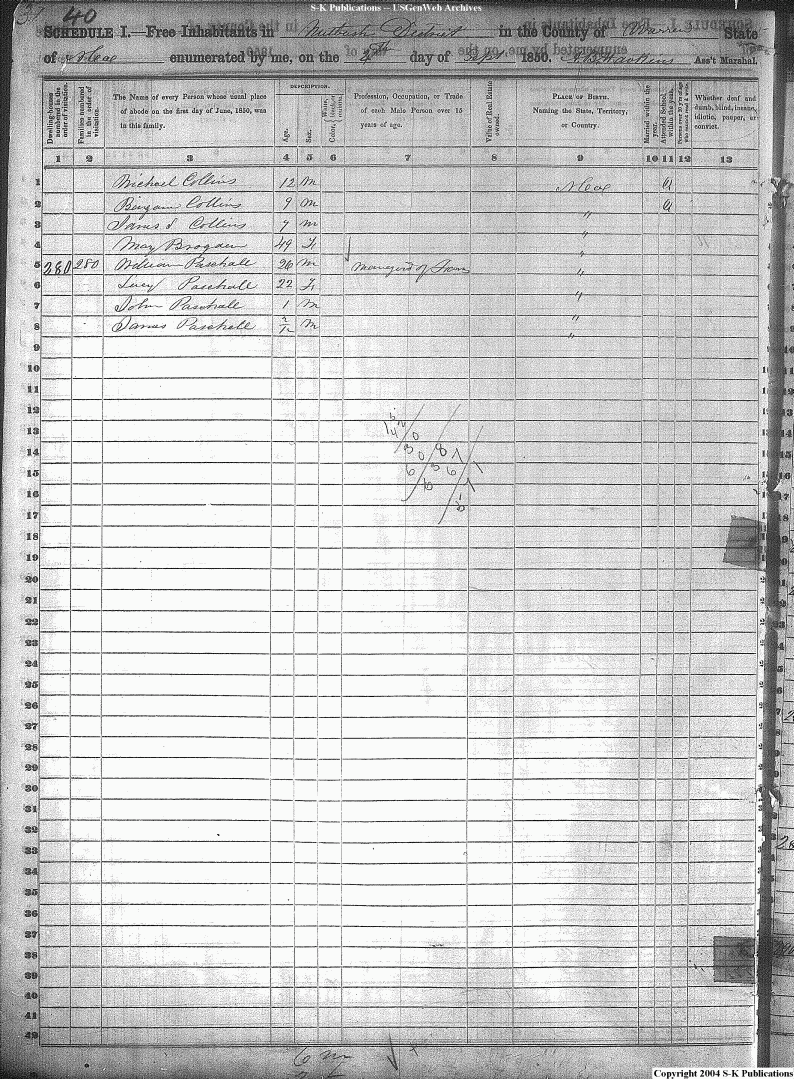 S-K Publications -- USGenWeb Archives
40
SCHEDULE I.—Free Inhabitants in Nutbush District in the County of Warren State
of N Car enumerated by me, on the 4th day of Sept 1850. Hawkins Ass't Marshal.
Dwelling-houses numbered in the order of visitation.
Families numbered in the order of visitation.
The Name of every Person whose usual place of abode on the first day of June, 1850, was in this family.
DESCRIPTION.
Age.
Sex.
Color, White, black, or mulatto.
Profession, Occupation, or Trade of each Male Person over 15 years of age.
Value of Real Estate owned.
PLACE OF BIRTH.
Naming the State, Territory, or Country.
Married within the year.
Attended School within the year.
Persons over 20 y'rs of age who cannot read & write.
Whether deaf and dumb, blind, insane, idiotic, pauper, or convict.
1 2 3 4 5 6 7 8 9 10 11 12 13
1 Michael Collins 12 m N Car
2 Collins 9 m "
3 James S Collins 7 m "
4 May Brogdon 49 F "
5 280 280 William Paschall 26 m "
6 Lucy Paschall 22 F "
7 John Paschall 1 m "
8 James Paschall 2/12 m "
9
10
11
12
13
14
15
16
17
18
19
20
21
22
23
24
25
26
27
28
29
30
31
32
33
34
35
36
37
38
39
40
41
42
6 m
Copyright 2004 S-K Publications